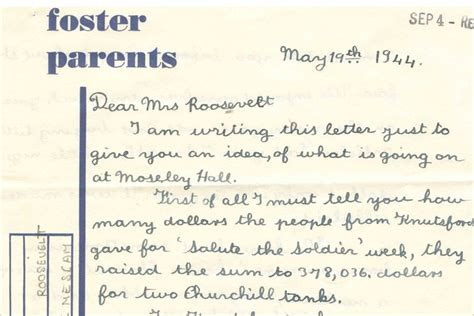 foster
parents
SEP 4 - RE
May 19th 1944.
Dear Mrs Roosevelt
I am writing this letter just to
give you an idea, of what is going on
at Moseley Hall.
First of all I must tell you how
many dollars the people from Knutsford
gave for 'salute the soldier' week, they
raised the sum to 378,036. dollars
for two Churchill tanks.
ROOSEVELT